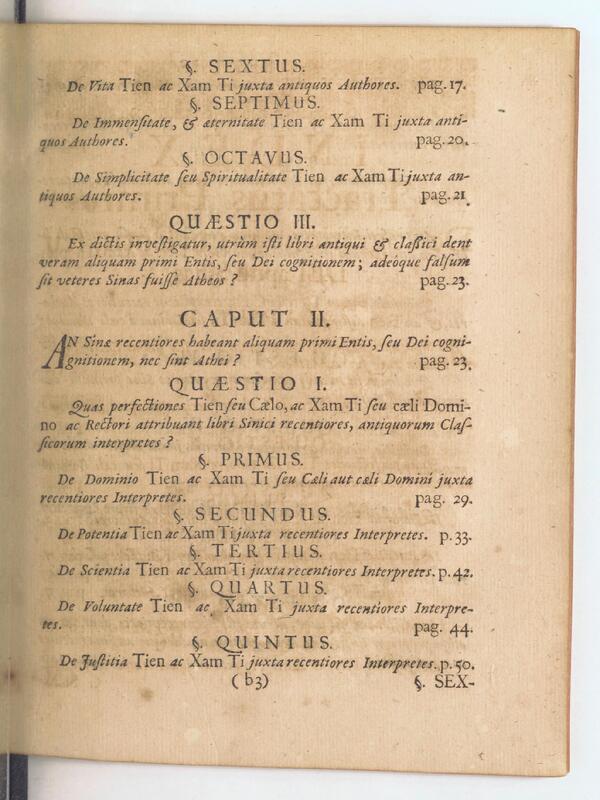 §. SEXTUS.
De Vita Tien ac Xam Ti juxta antiquos Authores. pag. 17.
§. SEPTIMUS.
De Immensitate, & æternitate Tien ac Xam Ti juxta anti-
quos Authores. pag. 20.
§. OCTAVUS.
De Simplicitate seu Spiritualitate Tien ac Xam Ti juxta an-
tiquos Authores. pag. 21.
QUÆSTIO III.
Ex dictis investigatur, utrùm isti libri antiqui & classici dent
veram aliquam primi Entis, seu Dei cognitionem; adeòque falsum
sit veteres Sinas fuisse Atheos? pag. 23.
CAPUT II.
AN Sinæ recentiores habeant aliquam primi Entis, seu Dei cogni-
gnitionem, nec sint Athei? pag. 23.
QUÆSTIO I.
Quas perfectiones Tien seu Cælo, ac Xam Ti seu cæli Domi-
no ac Rectori attribuant libri Sinici recentiores, antiquorum Clas-
sicorum interpretes?
§. PRIMUS.
De Dominio Tien ac Xam Ti seu Cæli aut cæli Domini juxta
recentiores Interpretes. pag. 29.
§. SECUNDUS.
De Potentia Tien ac Xam Ti juxta recentiores Interpretes. p. 33.
§. TERTIUS.
De Scientia Tien ac Xam Ti juxta recentiores Interpretes. p. 42.
§. QUARTUS.
De Voluntate Tien ac Xam Ti juxta recentiores Interpre-
tes. pag. 44.
§. QUINTUS.
De Justitia Tien ac Xam Ti juxta recentiores Interpretes. p. 50.
(b3) §. SEX-